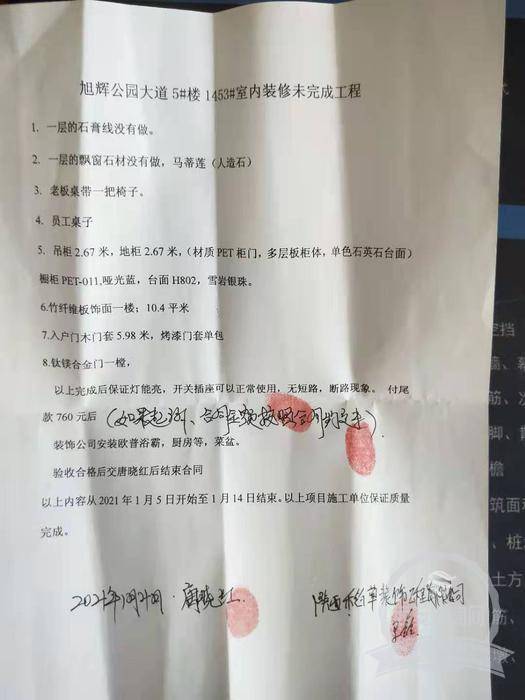 旭辉公园大道 5#楼 1453#室内装修未完成工程
1. 一层的石膏线没有做。
2. 一层的飘窗石材没有做，马蒂莲（人造石）
3. 老板桌带一把椅子。
4. 员工桌子
5. 吊柜 2.67 米，地柜 2.67 米，（材质 PET 柜门，多层板柜体，单色石英石台面）
橱柜 PET-011,哑光蓝，台面 H802，雪岩银珠。
6.竹纤维板饰面一楼；10.4 平米
7.入户门木门套 5.98 米，烤漆门套单包
8.钛镁合金门一樘，
以上完成后保证灯能亮，开关插座可以正常使用，无短路，断路现象。 付尾
款 760 元后（如果起诉、合同金额按照合同
装饰公司安装欧普浴霸，厨房等，菜盆。
验收合格后交唐晓红后结束合同
以上内容从2021 年 1 月 5 日开始至 1 月 14 日结束。以上项目施工单位保证质量
完成。
唐晓红
陕西 草装饰工程有限公司
空挡
墙、
筋、
脚、
檐
筑面积
、桩
土方
筋、